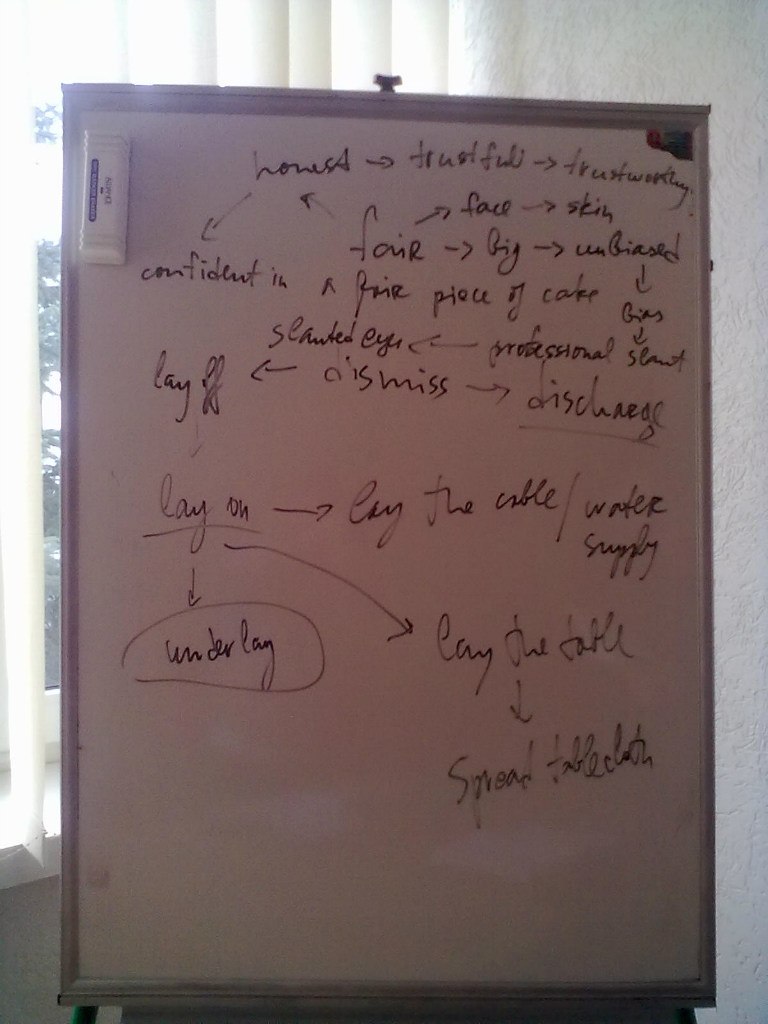 honest → trustfull → trustworthy
fair → face → skin
→ big → unbiased
confident in
a fair piece of cake
bias
slanted eye ← professional slant
lay off ← dismiss → discharge
lay on → lay the cable / water
supply
underlay
lay the table
spread tablecloth